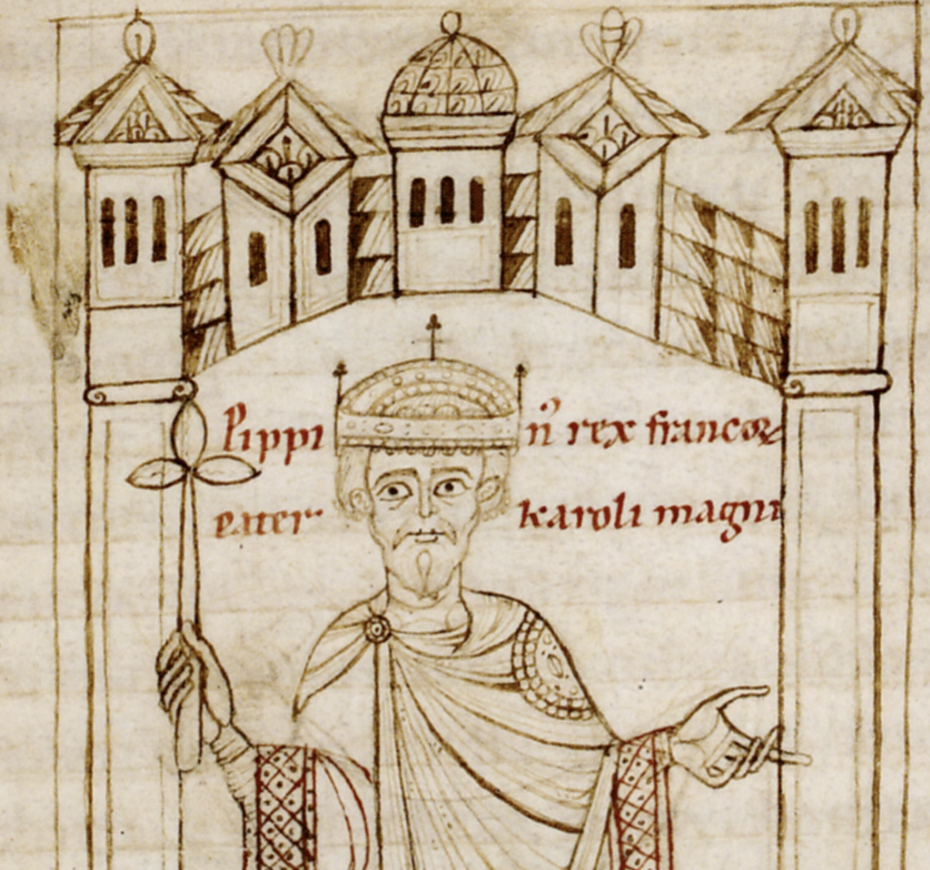 Pippin᾽ rex francoꝝ
pater karoli magni